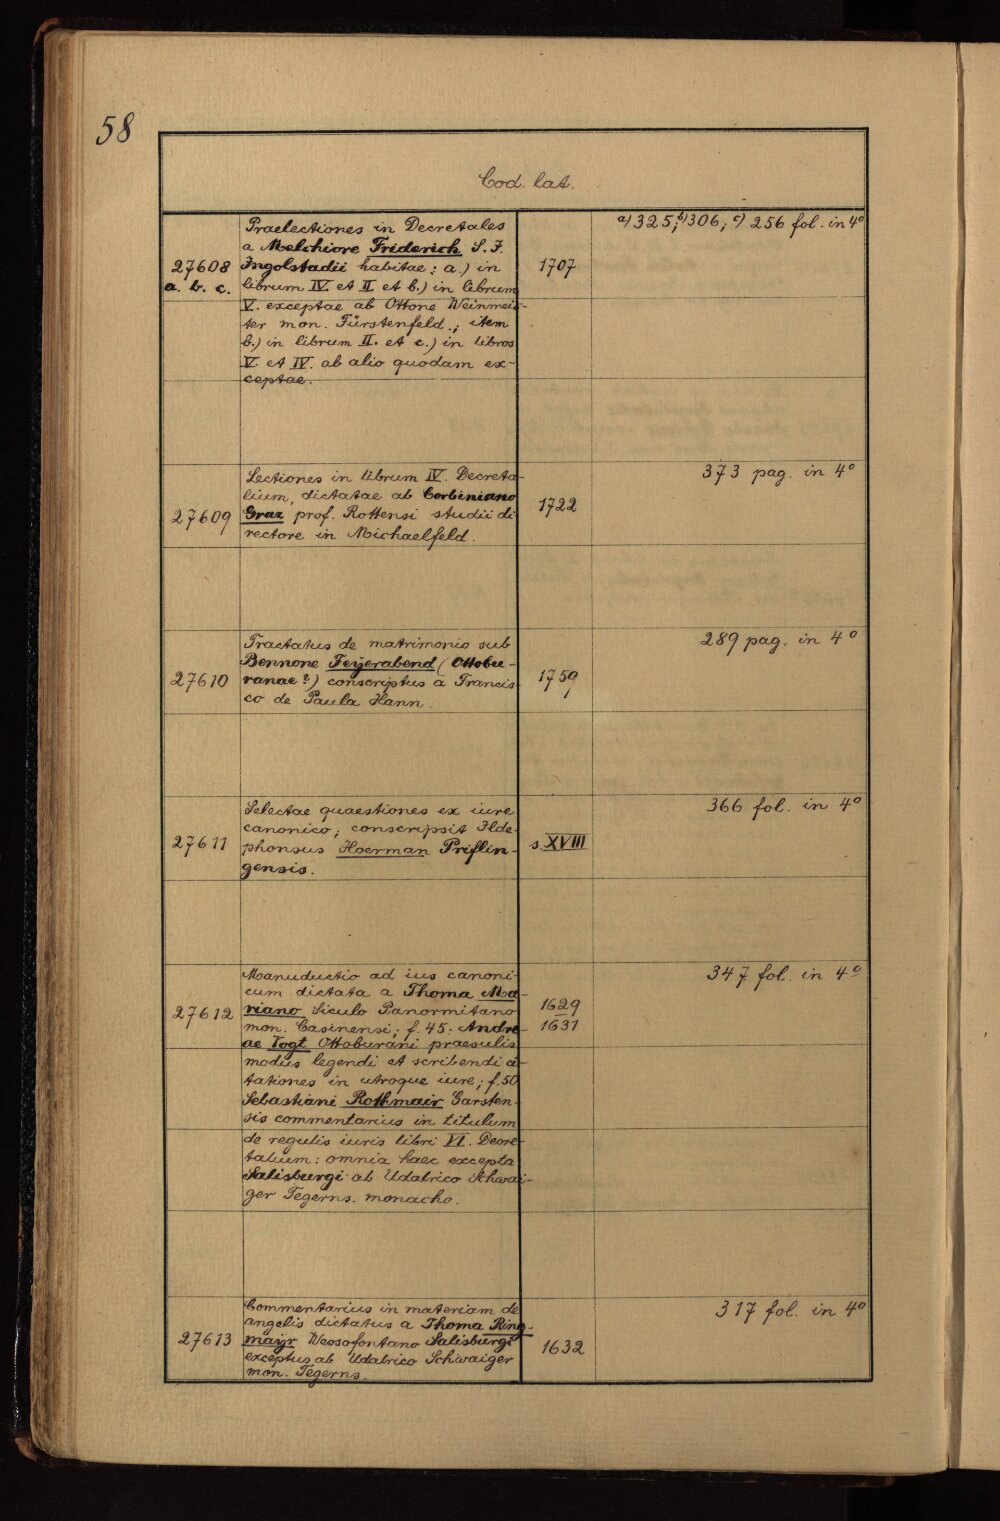 58
Cod. lat.
27608
a. b. c.
Praelectiones in Decretales
a Melchiore Friderich S. J.
Ingolstadii habitae: a.) in
librum IV. et II et b.) in librum
V. exceptae ab Ottone Weinmeis-
ter mon. Fürstenfeld.; item
b.) in librum II. et c.) in libros
V. et IV. ab alio quodam ex-
ceptae.
1707
a) 325; b) 306; c) 256 fol. in 4°
27609
Lectiones in librum IV. Decreta-
lium, dictatae ab Corbiniano
Graz prof. Rottensi studii di
rectore in Michaelfeld.
1722
373 pag. in 4°
27610
Tractatus de matrimonio sub
Bennone Feÿerabend (Ottobu-
ranae?) conscriptus a Francis-
co de Paula Hann.
1759
289 pag. in 4°
27611
Selectae quaestiones ex iure
canonico; conscripsit Ilde-
phonsus Hoerman Priflin-
gensis.
s. XVIII
366 fol. in 4°
27612
Manuductio ad ius canoni-
cum dictata a Thoma Ma-
riano Siculo Panormitano
mon. Casinensi; f. 45: Andre-
ae Vogt Ottoburani praesulis
modus legendi et scribendi ci-
tationes in utroque iure; f. 50
Sebastiani Rothmair Garsten-
sis commentarius in titulum
de regulis iuris libri VI. Decre-
talium: omnia haec excepta
Salisburgi ab Udalrico Schwai-
ger Tegerns. monacho.
1629
1631
347 fol. in 4°
27613
Commentarius in materiam de
angelis dictatus a Thoma Ring-
mayr Wessofontano Salisburgi
exceptus ab Udalrico Schwaiger
mon. Tegerns.
1632
317 fol. in 4°